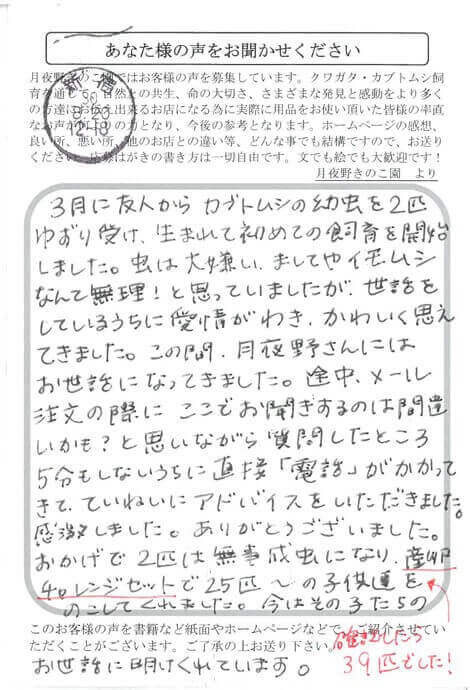 あなた様の声をお聞かせください
月夜野きのこ園ではお客様の声を募集しています。クワガタ・カブトムシ飼
育を通じて、自然との共生、命の大切さ、さまざまな発見と感動をより多く
の方達にお伝え出来るお店になる為に実際に用品をお使い頂いた皆様の率直
なお声が何よりの力となり、今後の参考となります。ホームページの感想、
良い所、悪い所、他のお店との違い等、どんな事でも結構ですので、お送り
ください。応募はがきの書き方は一切自由です。文でも絵でも大歓迎です!
月夜野きのこ園 より
3月に友人から カブトムシの幼虫を2匹
ゆずり受け、生まれて初めての飼育を開始
しました。虫は大嫌い、ましてやイモムシ
なんて無理!と思っていましたが、世話を
しているうちに愛情がわき、かわいく思え
てきました。この間、月夜野さんには
お世話になってきました。途中、メール
注文の際に ここでお聞きするのは間違
いかも?と思いながら 質問したところ
5分もしないうちに直接「電話」がかかって
きて、ていねいにアドバイスをいただきました。
感激しました。ありがとうございました。
おかげで2匹は無事成虫になり、産卵
40レンジセットで25匹〜の子供達を
のこしてくれました。今はその子たちの
このお客様の声を書籍など紙面やホームページなどで、ご紹介させてい
ただくことがございます。ご了承の上お送り下さい。
お世話に明けくれています。
確認したら
39匹でした!